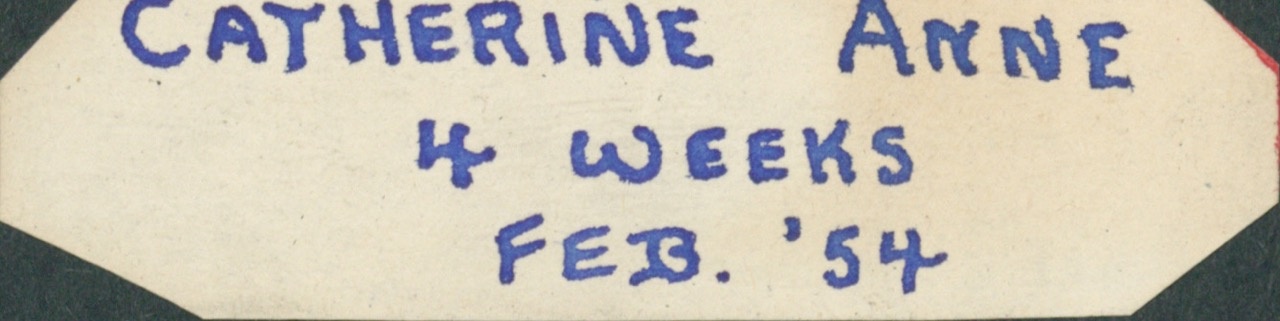 CATHERINE ANNE
4 WEEKS
FEB. '54